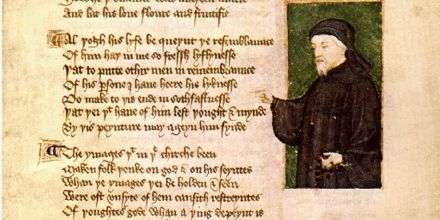 And lat his loue floure and fructifie
Al þogh his lyfe be queynt þe resemblaunce
Of him haþ in me so fressh lyflynesse
Þat to putte othir men in remembraunce
Of his persone I haue heere his lyknesse
Do make to þis ende in sothfastnesse
Þat þei þt haue of him left þought & mynde
By þis peynture may ageyn him fynde
The ymages þt in þe chirche been
Maken folk þenke on god & on his seyntes
Whan þe ymages þei be holden & seen
Were oft vnsyte of hem causith restreyntes
Of þoughtes gode whan a þing depeynt is